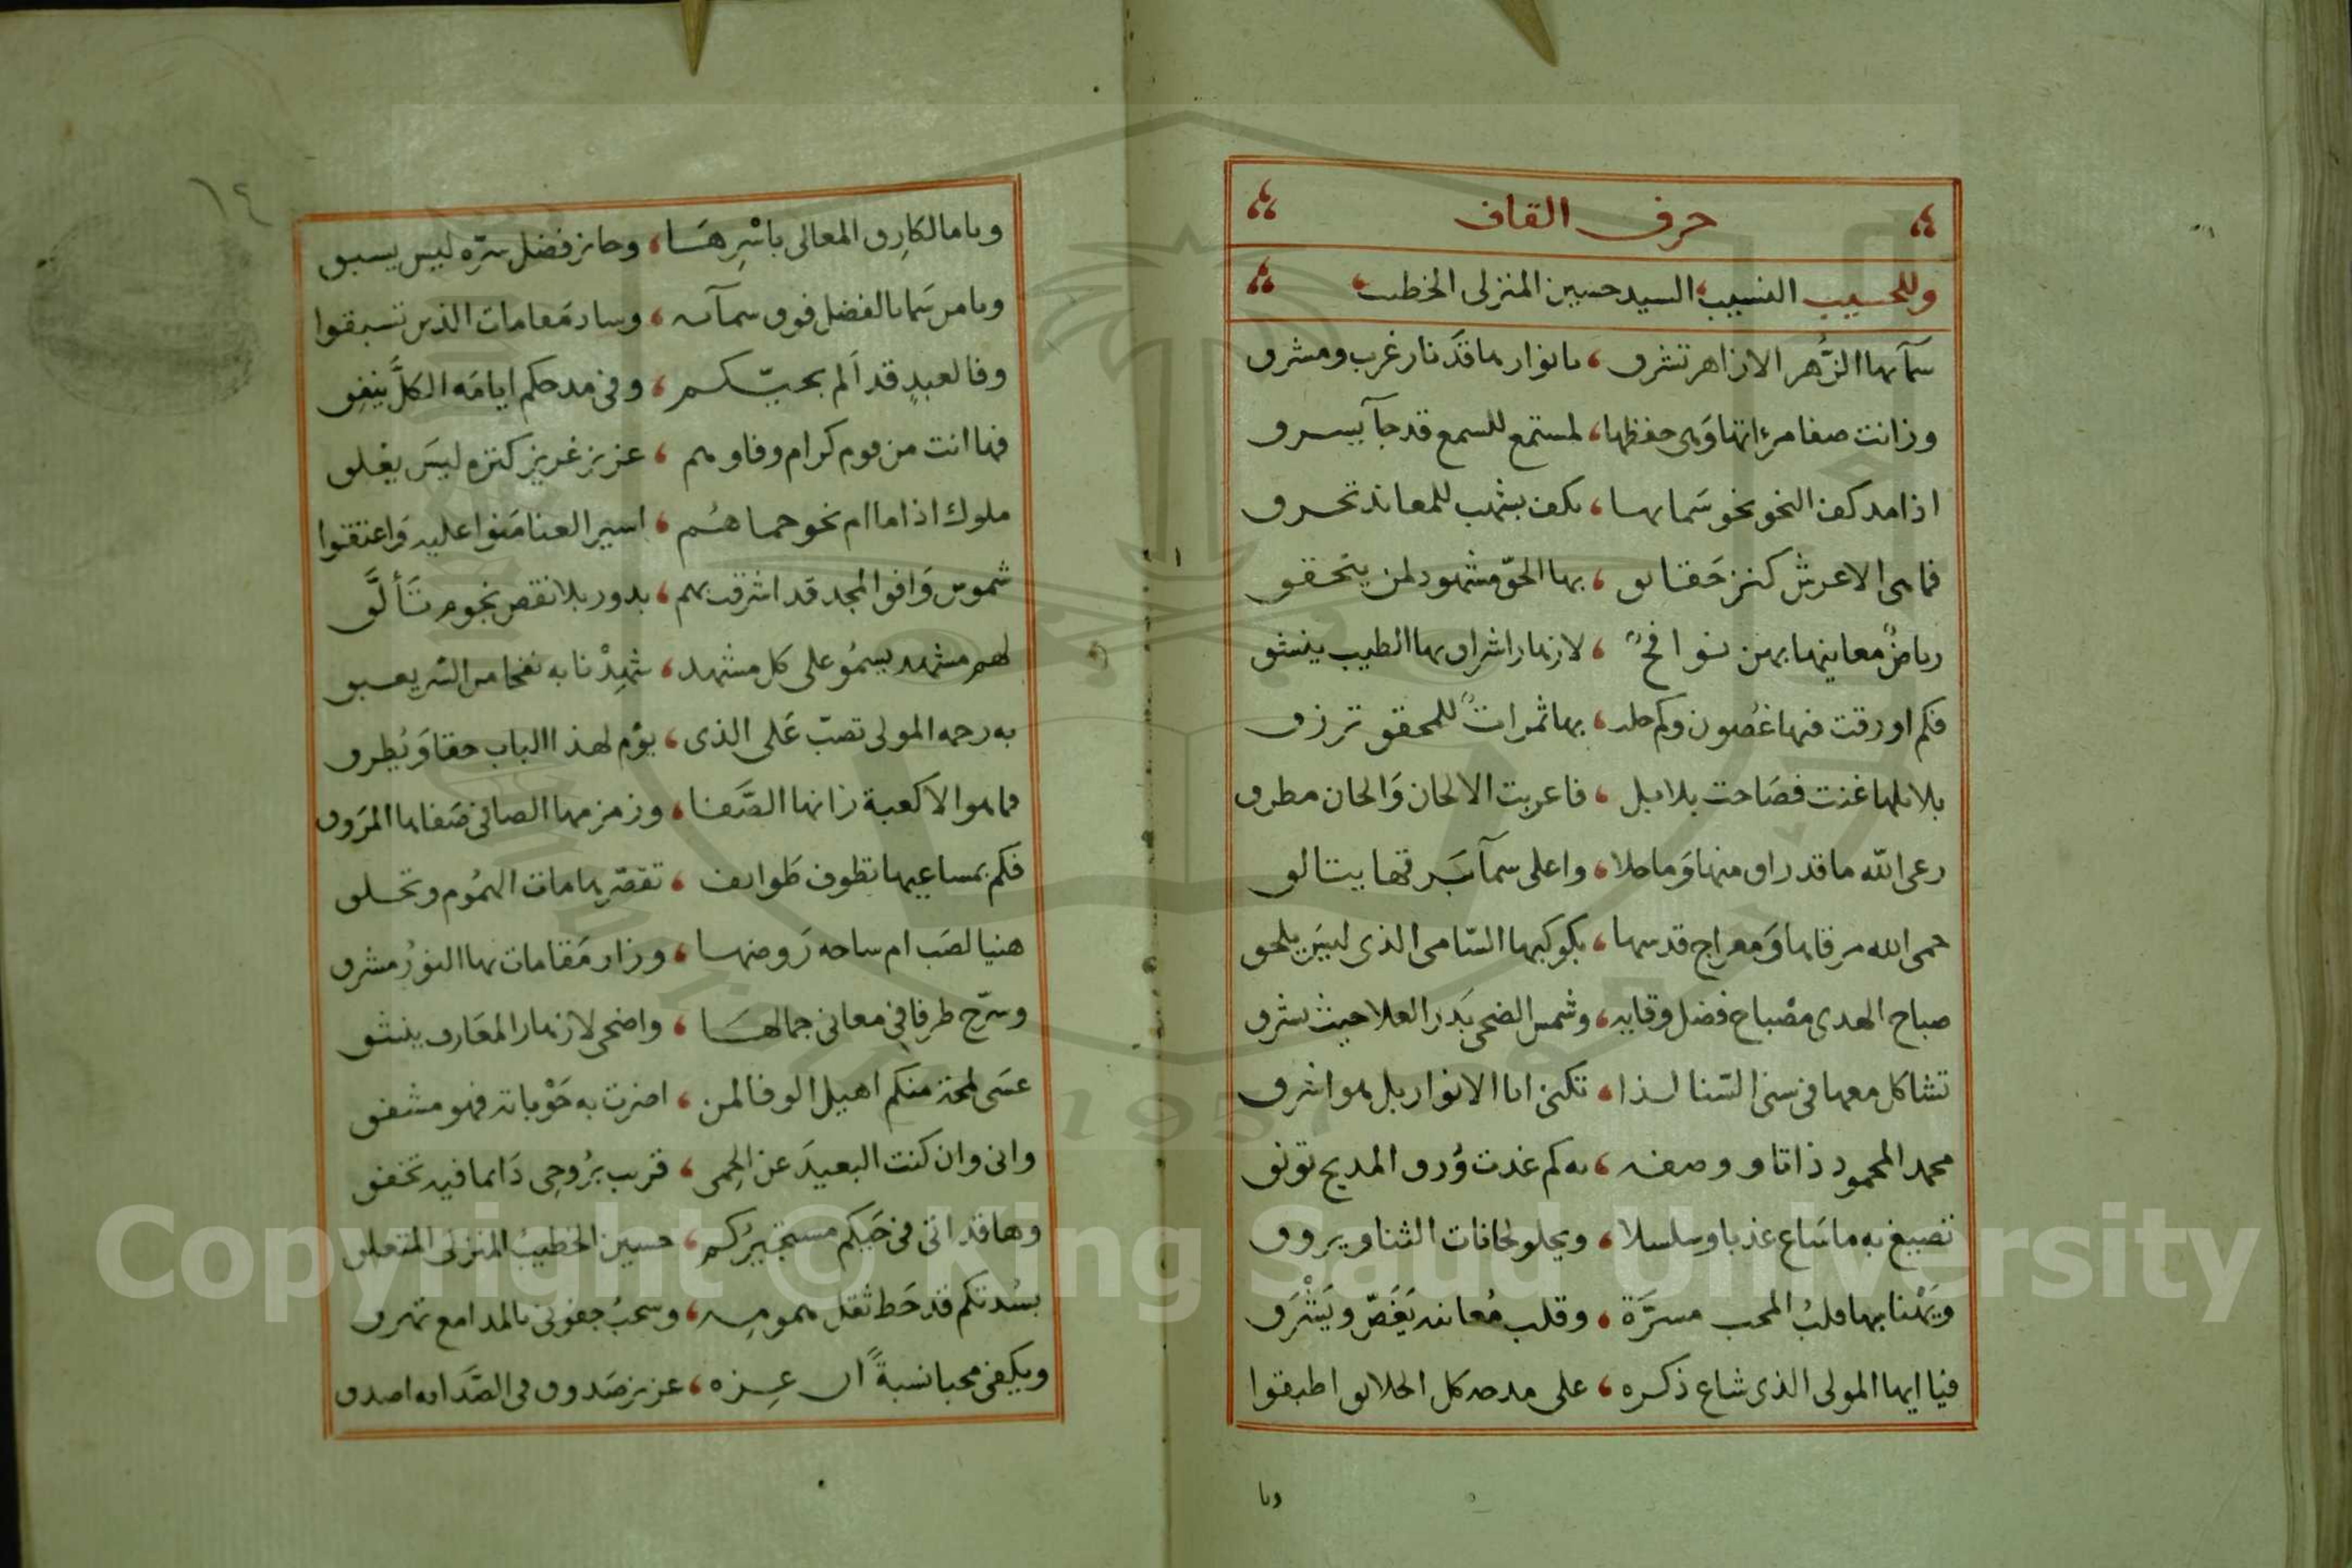 حرف القاف
وللحسيب النسيب السيد حسين المنزلى الخطيب
سمآبها الزُّهر الازاهر تشرق، بانوارها قدَ نار غرب ومشرق
وزانت صفا مرءاتها وَهى حفظها، لمستمع للسمع قد جآ يسرق
اذا مد كف النحو نحو سَمابها، بكف بشهب للمعاند تحرق
فما هى الا عرش كنز حَقائق، بها الحقّ مشهود لمن يتحقق
رياضٌ معاينها بهن نوافحٌ، لازهار اشراق بها الطيب ينشق
فكم اورقت فيها غصُون وكم حلت، بها ثمراتٌ للمحقق ترزق
بلابلها غنت فصَاحت بلابل، فاعربت الالحان وَالحان مطرق
رعى الله ما قد راق منها وَما حلا، واعلى سمآبَرقها يتالق
حمى الله مرقاها وَمعراج قدسها، بكوكبها السّامى الذى ليسَ يلحق
صباح الهدى مصْباح فضل وقايه، وشمس الضحى بَدر العلا حيث تشرق
تشاكل معها فى سنى السّنا لذا، تكنى ابا الانوار بل هو اشرق
محمد المحمود ذاتا ووصفه، به كم غدت وُرق المديح توثق
تصيغ به ما سَاغ عذبا وسلسلا، ويحلو لحانات الثنا ويروق
ويَهْنا بها قلبُ المحب مسرَّة، وقلب مُعانه يَغَصّ ويَشْرَق
فيا ايها المولى الذى شاع ذكره، على مدحه كل الخلائق اطبقوا
ويا
١٤
ويا مالكا رق المعالى باسْرِهَا، وحائز فضل سرّه ليس يسبق
ويا من سَما بالفضل فوق سمآئه، وساد مَقامات الذين تسبقوا
وفا لعبدٍ قد اَلم بحيّكم، وفى مدحكم ايامَه الكلَّ ينفِق
فها انت من قوم كرام وفاوهم، عزيز غريز كنزه ليسَ يغلق
ملوك اذا ما ام نحو حماهُم، اسير العنا مَنوا عليه وَاعتقوا
شموس وَافق المجد قد اشرقت بهم، بدور بلا نقص نجوم تَألَّق
لهم مشهد يسمُو على كل مشهد، شهِدْنا به نفحا من السّر يعبق
به رحمه المولى تصبّ عَلى الذى، يؤم لهذا الباب حقا وَيُطرق
فما هو الا كعبة زانها الصَّفا، وزمزمها الصافى صَفاها المرَوق
فكم بمساعيها تطوف طَوائف، تقصّر هامات الهمُوم وتحلق
هنيا لصَب ام ساحه رَوضها، وزار مَقامات بها النورُ مشرق
وسرّح طرفا فى معانى جمالهَا، واضحى لازهار المعَارف ينشق
عسَى لمحة منكم اهيل الوفا لمن، اضرت به حَوْباته فهو مشفق
وانى وان كنت البعيدَ عن الحِمى، قريب برُوحِى دَايما فيه تخفق
وها قد اتى فى حَيكم مستجيرُكم، حسين الخطيبُ المنزلى المتعلق
بسُدتكم قد حَط ثقل همومه، وسحبُ جفونى بالمدامع تهرق
ويكفى محبا نسبةً ان عِزه، عزيز صَدوق فى الصَّداقه اصدق
Copyright © King Saud University
1957